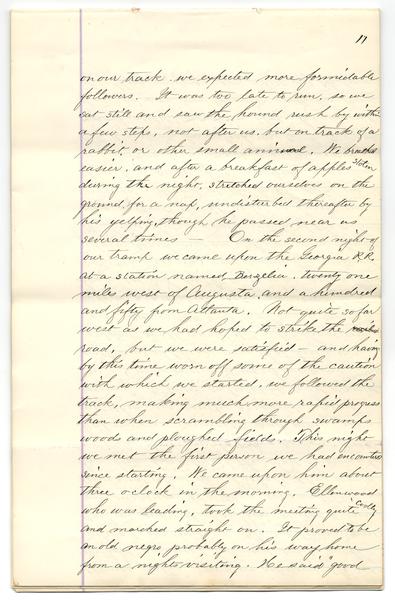 17
on our track we expected more formidable
followers. It was too late to run, so we
sat still and saw the hound rush by within
a few steps, not after us, but on track of a
rabbit, or other small animal. We breathed
easier, and after a breakfast of apples stolen
during the night, stretched ourselves on the
ground, for a nap, undisturbed thereafter by
his yelping, though he passed near us
several times — On the second night of
our tramp we came upon the Georgia R.R.
at a station named Berzelia, twenty one
miles west of Augusta, and a hundred
and fifty from Atlanta. Not quite so far
west as we had hoped to strike the
road, but we were satisfied — and having
by this time worn off some of the caution
with which we started, we followed the
track, making much more rapid progress
than when scrambling through swamps
woods and ploughed fields. This night
we met the first person we had encountered
since starting. We came upon him about
three o'clock in the morning. Ellenwood
who was leading, took the meeting quite cooly
and marched straight on. It proved to be
an old negro probably on his way home
from a nights visiting. He said "good